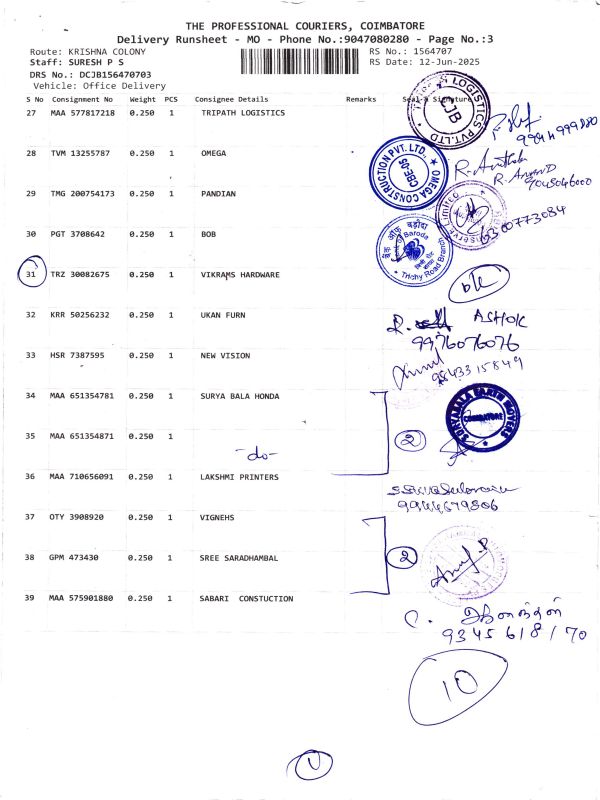 THE PROFESSIONAL COURIERS, COIMBATORE
Delivery Runsheet - MO - Phone No.:9047080280 - Page No.:3
Route: KRISHNA COLONY
RS No.: 1564707
Staff: SURESH P S
RS Date: 12-Jun-2025
DRS No.: DCJB156470703
Vehicle: Office Delivery
S No Consignment No Weight PCS Consignee Details Remarks Seal & Signature
27 MAA 577817218 0.250 1 TRIPATH LOGISTICS
LOGISTICS PVT.LTD
CJB
28 TVM 13255787 0.250 1 OMEGA
OMEGA CONSTRUCTION PVT. LTD.,
CBE-05
R. Anand
9048046000
29 TMG 200754173 0.250 1 PANDIAN
6300773084
30 PGT 3708642 0.250 1 BOB
बैंक ऑफ़ बड़ौदा
Bank of Baroda
Trichy Road Branch
31 TRZ 30082675 0.250 1 VIKRAMS HARDWARE
32 KRR 50256232 0.250 1 UKAN FURN
ASHOK
9976076076
33 HSR 7387595 1 NEW VISION
9843315849
34 MAA 651354781 0.250 1 SURYA BALA HONDA
SURYABALA EARTH MOVERS
COIMBATORE
35 MAA 651354871 0.250 1
-do-
2
36 MAA 710656091 0.250 1 LAKSHMI PRINTERS
9944679806
37 OTY 3908920 0.250 1 VIGNEHS
38 GPM 473430 0.250 1 SREE SARADHAMBAL
2
39 MAA 575901880 0.250 1 SABARI CONSTUCTION
9345618170
10